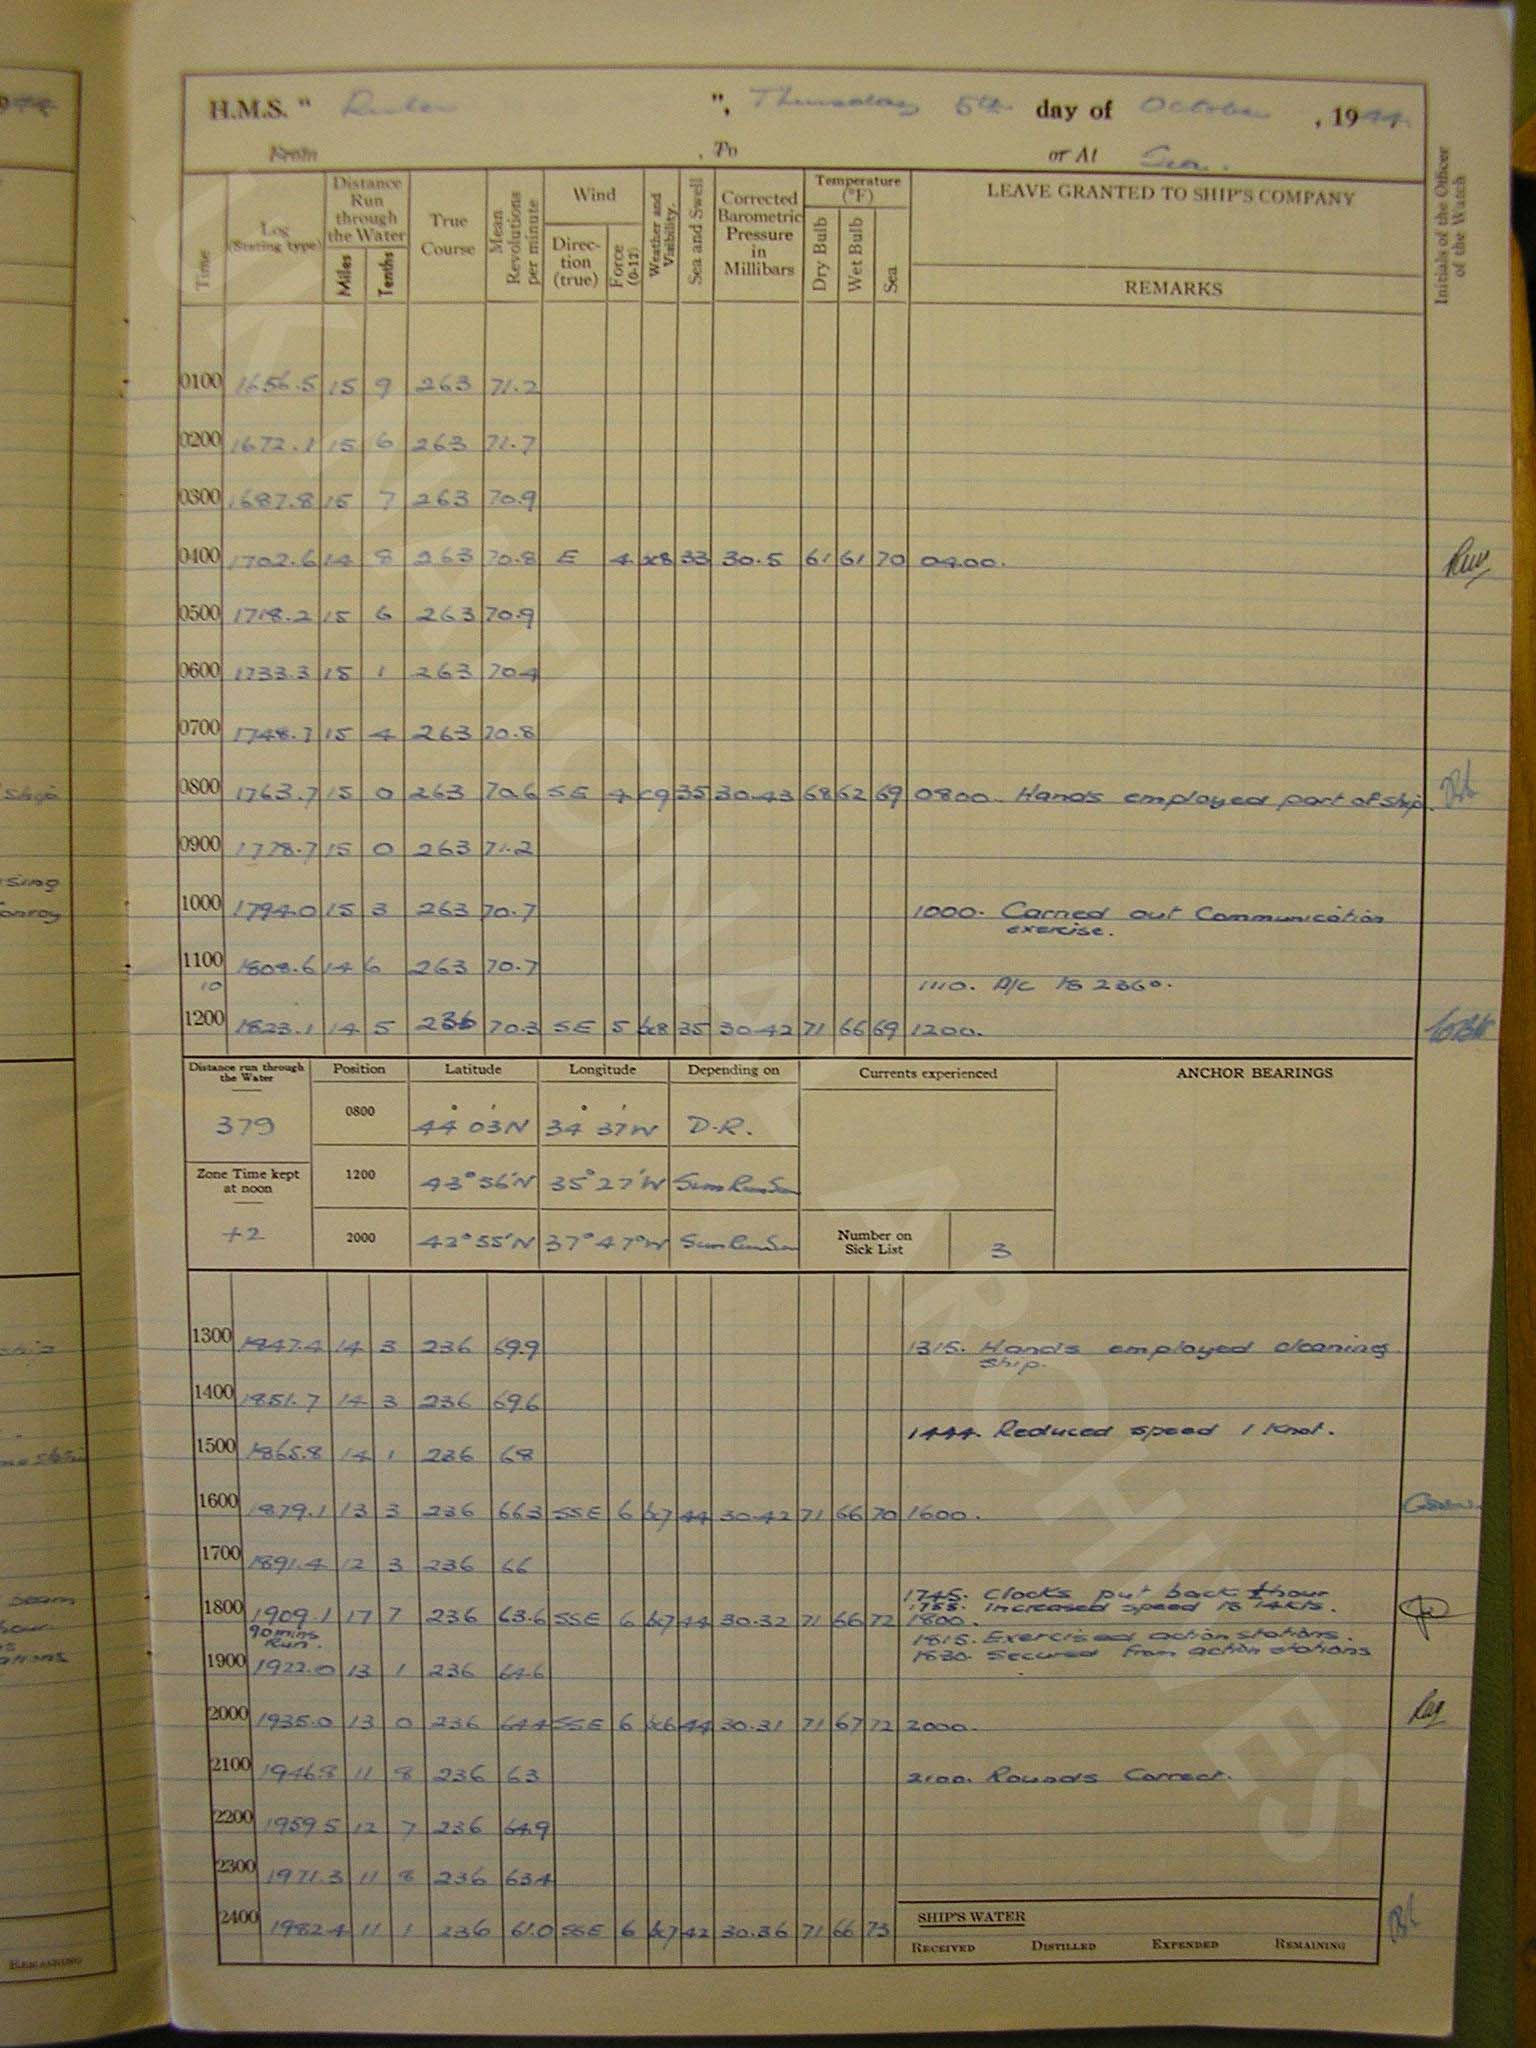 H.M.S. " Ruler ", Thursday 5th day of October, 1944.
From , To or At Sea.
Time
Log (Stating type)
Distance Run through the Water
Miles
Tenths
True Course
Mean Revolutions per minute
Wind
Direction (true)
Force (0-12)
Weather and Visibility.
Sea and Swell
Corrected Barometric Pressure in Millibars
Temperature (°F)
Dry Bulb
Wet Bulb
Sea
LEAVE GRANTED TO SHIP'S COMPANY
REMARKS
Initials of the Officer of the Watch
0100 1656.5 15 9 263 71.2
0200 1672.1 15 6 263 71.7
0300 1687.8 15 7 263 70.9
0400 1702.6 14 8 263 70.8 E 4 33 30.5 61 61 70 0400.
0500 1718.2 15 6 263 70.9
0600 1733.3 15 1 263 70.4
0700 1748.7 15 4 263 70.8
0800 1763.7 15 0 263 70.6 SE 4 c9 35 30.43 68 62 69 0800. Hands employed part of ship.
0900 1778.7 15 0 263 71.2
1000 1794.0 15 3 263 70.7 1000. Carried out Communication
exercise.
1100 1808.6 14 6 263 70.7
10 1110. A/C to 236°.
1200 1823.1 14 5 236 70.3 SE 5 bc8 35 30.42 71 66 69 1200.
Distance run through the Water
379
Zone Time kept at noon
+2
Position Latitude Longitude Depending on
0800 44° 03'N 34° 37'W D.R.
1200 43° 56'N 35° 27'W Sun Run Sun
2000 42° 55'N 37° 47'W Sun Run Sun
Currents experienced
Number on Sick List 3
ANCHOR BEARINGS
1300 1847.4 14 3 236 69.9 1315. Hands employed cleaning
ship.
1400 1851.7 14 3 236 69.6
1444. Reduced speed 1 Knot.
1500 1865.8 14 1 236 68
1600 1879.1 13 3 236 66.3 SSE 6 bc7 44 30.42 71 66 70 1600.
1700 1891.4 12 3 236 66
1745. Clocks put back hour
1755. Increased speed to 14 kts.
1800 1909.1 17 7 236 63.6 SSE 6 bc7 44 30.32 71 66 72 1800.
90 mins Run.
1815. Exercised action stations.
1830. Secured from action stations
1900 1922.0 13 1 236 64.6
2000 1935.0 13 0 236 64.4 SSE 6 bc6 44 30.31 71 67 72 2000.
2100 1946.8 11 8 236 63 2100. Rounds Correct.
2200 1959.5 12 7 236 64.9
2300 1971.3 11 8 236 63.4
2400 1982.4 11 1 236 61.0 SSE 6 bc7 42 30.36 71 66 73
SHIP'S WATER
RECEIVED DISTILLED EXPENDED REMAINING
REMAINING
NATIONAL ARCHIVES